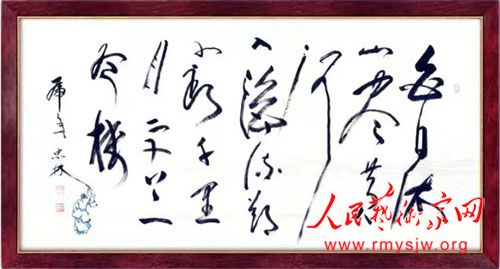 白日依
山尽黄
河
入海流欲
穷千里
目更上一
层楼
虎年
人民藝術家网
www.rmysjw.org